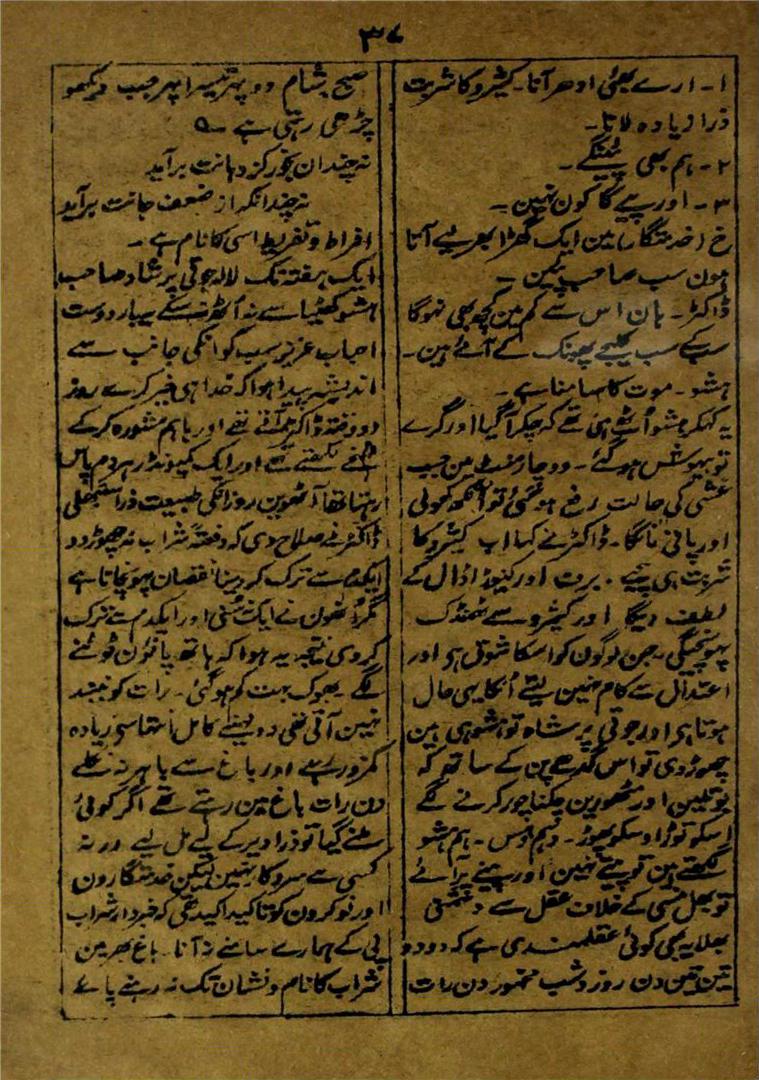 ۳۷
۱۔ ارے بھئی ادھر آنا۔ کیشرو کا شربت
ذرا زیادہ لانا۔
۲۔ ہم بھی پیئنگے۔
۳۔ اور پیے گا کون نہین۔
خ (خدمتگار) مین ایک گھڑا بھر لیے آتا
ہون سب صاحب پئین۔
ڈاکٹر۔ ہان اس سے کم مین کچھ بھی نہوگا
سب کے سب کلیجے پھینک کے آئے ہین۔
ہشو۔ موت کا سامنا ہے۔
یہ کہکر ہشو اُٹھے ہی تھے کہ چکر آگیا اور گرے
تو بیہوش ہو گئے۔ دو چار منٹ مین جب
غشی کی حالت رفع ہو گئی تو آنکھ کھولی
اور پانی مانگا۔ ڈاکٹر نے کہا اب کیشرو کا
شربت ہی پیے۔ برف اور کیوڑا ڈال کے
لطف دیگا اور کیشرو سے ٹھنڈک
پہونچیگی۔ جن لوگون کو اسکا شوق ہی اور
اعتدال سے کام نہین لیتے اُنکا یہی حال
ہوتا ہی اور جوتی پرشاد تو ہشو ہی ہین
چھوڑ دی تو اس گدھے پن کے ساتھ کہ
بوتلین اور مٹھورین چکنا چور کرنے لگے
اسکو توڑا وسکو پھوڑ۔ دہم اوس۔ ہم ہشو
لکھتے ہین تو پیتے نہین اور پینے پر آئے
تو بھل منسی کے خلاف عقل سے دشمنی
بھلا یہ بھی کوئی عقلمندی ہے کہ دو دو
تین تین دن روز و شب مخمور دن رات
صبح شام دوپہر تیسرا پہر جب دیکھو
چڑھی رہتی ہے ؎
نہ چندان بخور کز دہانت برآید
نہ چندانکہ از ضعف جانت برآید
افراط و تفریط اسی کا نام ہے۔
ایک ہفتہ تک لالہ جوتی پرشاد صاحب
ہشو کھٹیا سے نہ اُٹھ سکے یار دوست
احباب عزیز سب کو انکی جانب سے
اندیشہ پیدا ہوا کہ خدا ہی خیر کرے روز
دو دفعہ ڈاکٹر آتے تھے اور باہم مشورہ کر کے
نسخے لکھتے تھے اور ایک کمپونڈر ہر دم پاس
رہتا تھا آٹھوین روز انکی طبیعت ذرا سنبھلی
ڈاکٹر نے صلاح دی کہ دفعۃً شراب نہ چھوڑ دو
ایکدم سے ترک کر دینا نقصان پہونچاتا ہے
مگر اُنھون نے ایک نہ سُنی اور ایکدم سے ترک
کر دی نتیجہ یہ ہوا کہ ہاتھ پانؤن ٹوٹنے
لگے بھوک بہت کم ہو گئی۔ رات کو نیند
نہین آتی تھی دو مہینے کامل انتہا سے زیادہ
کمزور رہے اور باغ سے باہر نہ نکلے
دن رات باغ مین رہتے تھے اگر کوئی
ملنے گیا تو ذرا دیر کے لیے مل لیے ورنہ
کسی سے سروکار نہین لیکن خدمتگارون
اور نوکرون کو تاکید اکید تھی کہ خبردار شراب
پی کے ہمارے سامنے نہ آنا۔ باغ بھر مین
شراب کا نام و نشان تک نہ رہنے پائے